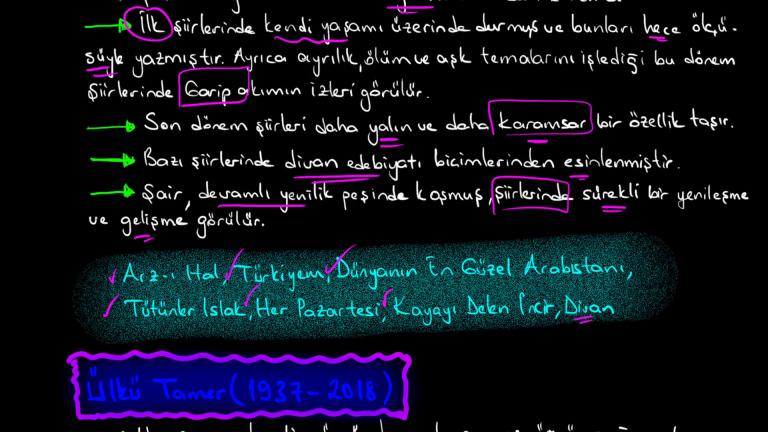 İlk şiirlerinde kendi yaşamı üzerinde durmuş ve bunları hece ölçü-
süyle yazmıştır. Ayrıca ayrılık, ölüm ve aşk temalarını işlediği bu dönem
şiirlerinde Garip akımının izleri görülür.
Son dönem şiirleri daha yalın ve daha karamsar bir özellik taşır.
Bazı şiirlerinde divan edebiyatı biçimlerinden esinlenmiştir.
Şair, devamlı yenilik peşinde koşmuş, şiirlerinde sürekli bir yenileşme
ve gelişme görülür.
Arz-ı Hal, Türkiyem, Dünyanın En Güzel Arabistanı,
Tütünler Islak, Her Pazartesi, Kayayı Delen İncir, Divan
Ülkü Tamer (1937-2018)